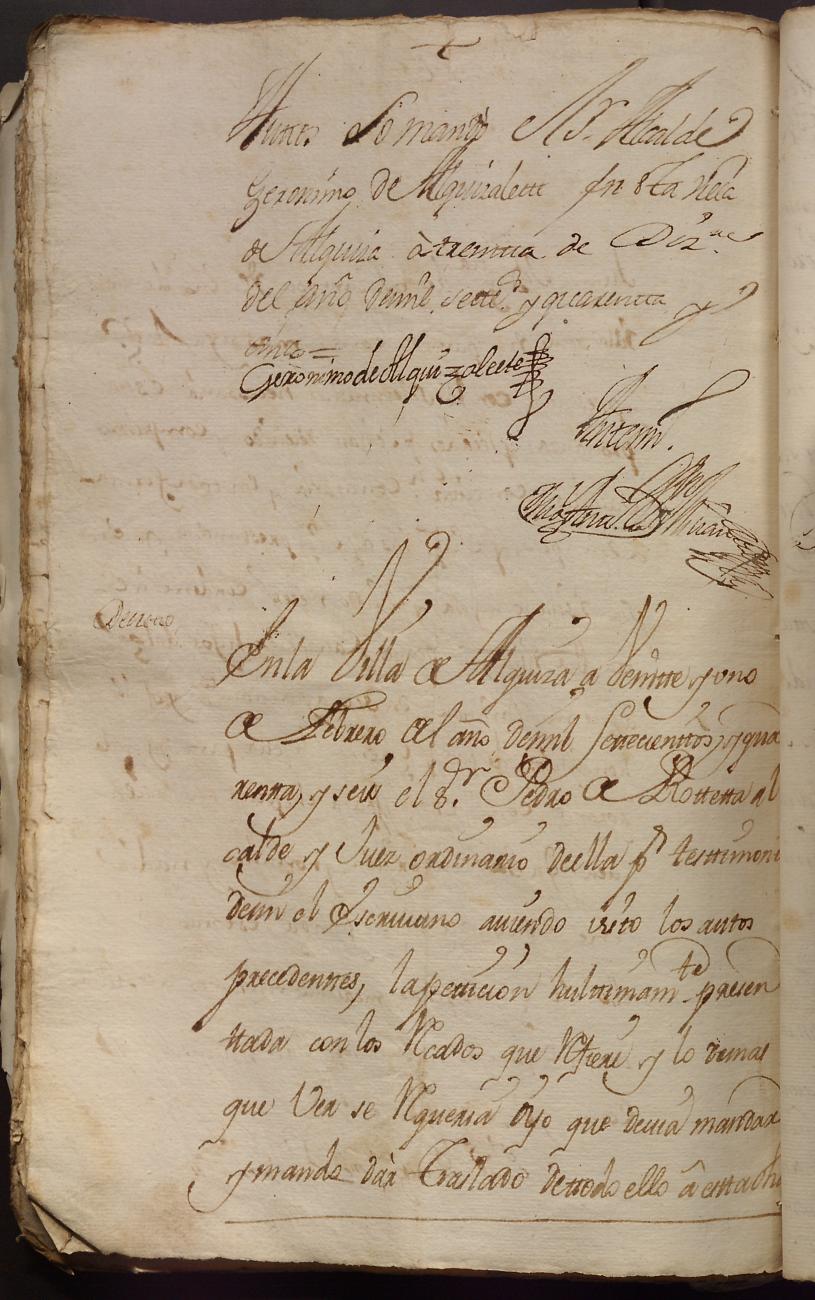 Auttos Lo mandò el Sr. Alcalde
Geronimo de Alquizalette en esta villa
de Alquiza à trentta de Diz.re
del año demil settec.s y quarentta y
cinco =
Geronimo de Alquizalete
Antemi.
Decreto
En la Villa de Alquiza a Veintte y uno
de Febrero del año demil Settecienttos, y qua
rentta, y seis el S.r Pedro de Rotteta al
calde y Juez ordinario deella p.r testtimoni
demi el Escriuano auiendo visto los autos
precedenttes, la peticion hulttimam.te presen
ttada con los Rcados que Refiere y lo demas
que Ver se Rqueria Dijo que deuia mandar
y mando dàr Traslado de ttodo ello â estta